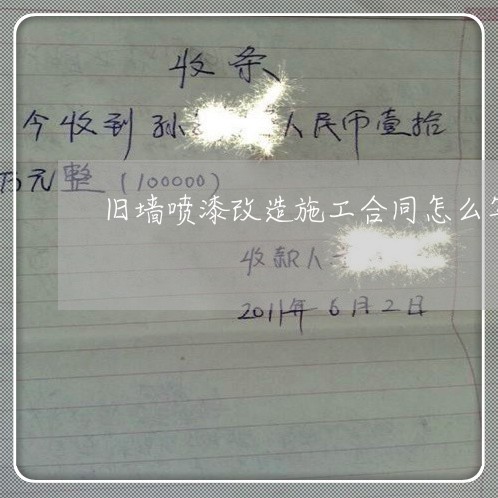 收条
今收到孙 人民币壹拾
万元整(100000)
旧墙喷漆改造施工合同怎么
收款人
2011年6月2日